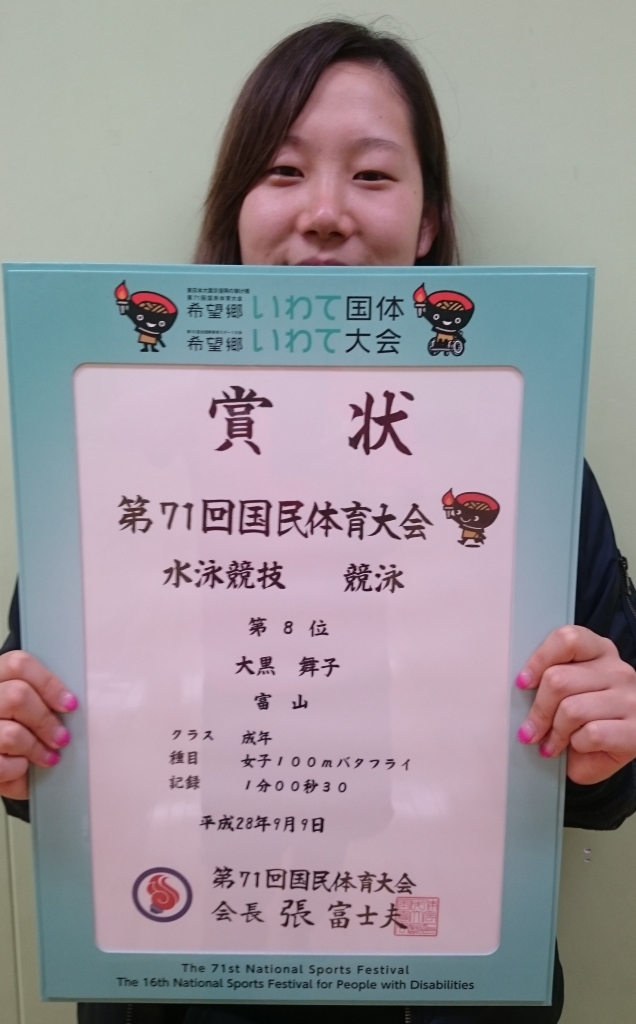 第71回国民体育大会
希望郷 いわて国体
希望郷 いわて大会
賞状
第71回国民体育大会
水泳競技 競泳
第 8 位
大黒 舞子
富 山
クラス 成年
種目 女子100mバタフライ
記録 1分00秒30
平成28年9月9日
第71回国民体育大会
会長 張 富士夫
The 71st National Sports Festival
The 16th National Sports Festival for People with Disabilities